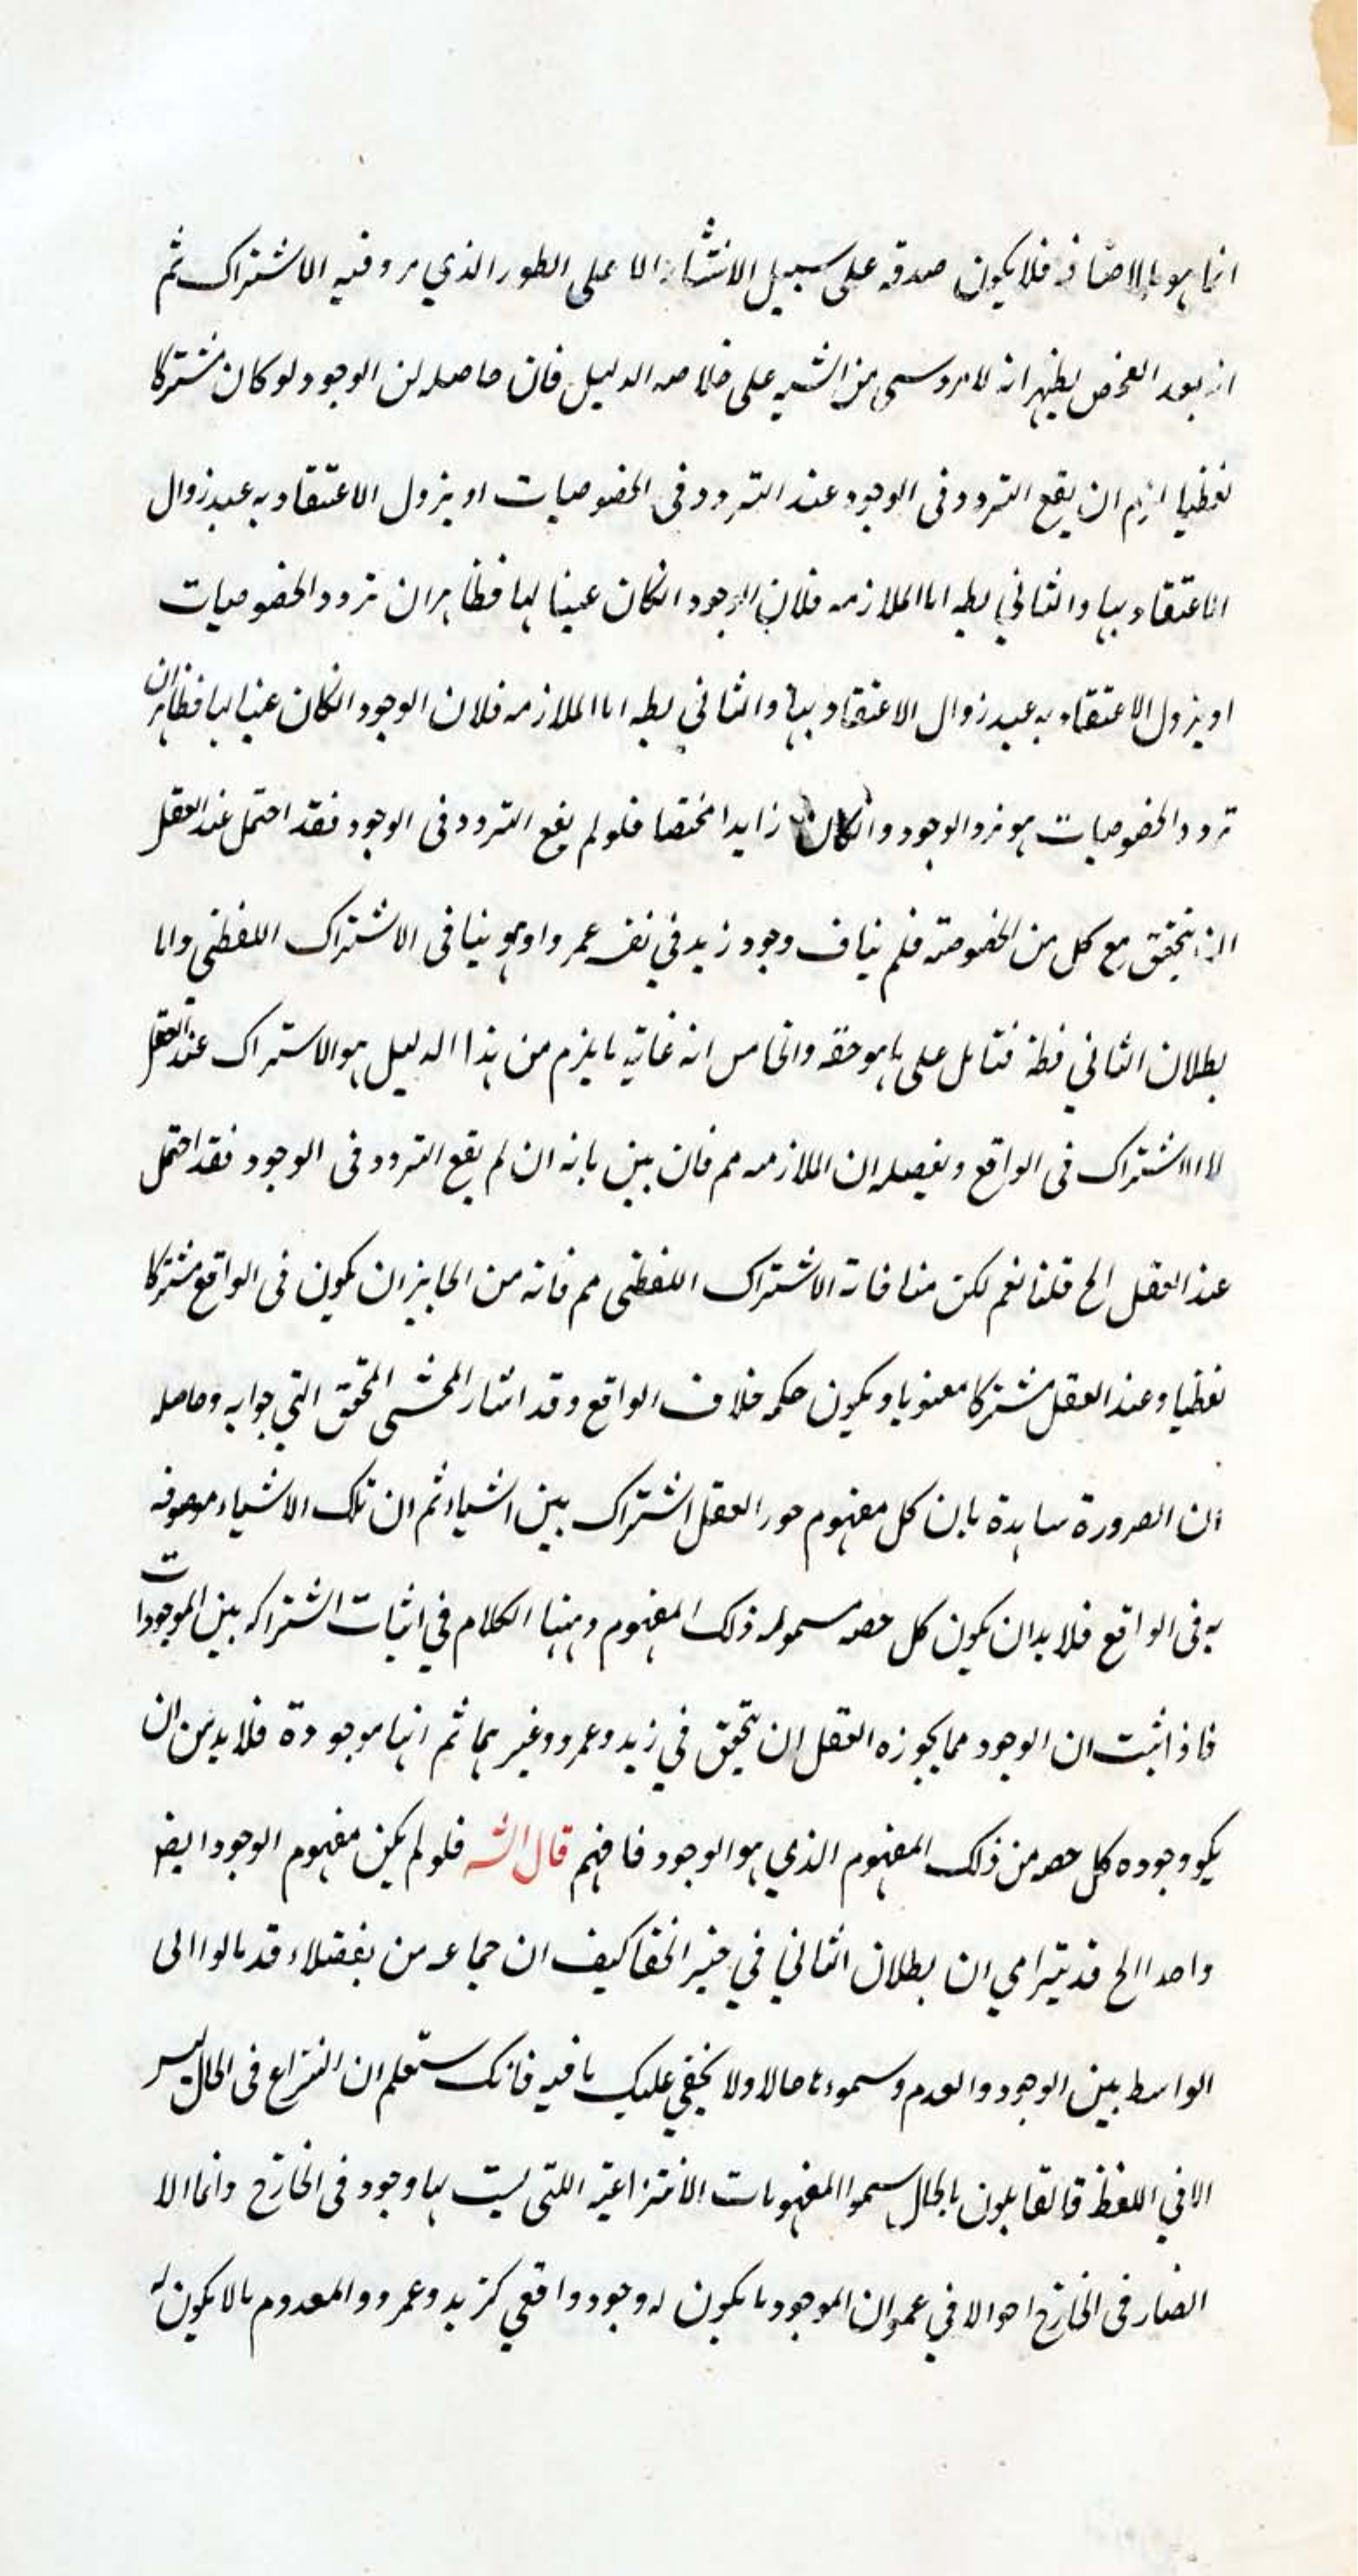 انما هو بالاضافه فلا يكون صدقه على سبيل الانتشار الا على الطور الذي مر وفيه الاشتراك ثم
انه بعد الفحص يظهر انه لا يرد شي من الشبه على خلاصه الدليل فان حاصله ان الوجود لو كان مشتركا
لفظيا لزم ان يقع التردد فى الوجود عند التردد فى الخصوصيات او يزول الاعتقاد به عند زوال
الاعتقاد بها والثاني بطه اما الملازمه فلان الوجود انكان عينا لها فظاهر ان تردد الخصوصيات
او يزول الاعتقاد به عند زوال الاعتقاد بها والثاني بطه اما الملازمه فلان الوجود انكان عينا لها فظاهر ان
تردد الخصوصيات هو تردد الوجود وانكان زايدا مختصا فلو لم يقع التردد فى الوجود فقد احتمل عند العقل
ان يتحقق مع كل من الخصوصته فلم يناف وجود زيد في نفـ عمر واو هو ينافى الاشتراك اللفظى واما
بطلان الثاني فظه فتامل على ما هو حقه والخامس انه غايته ما يلزم من هذا الدليل هو الاشتراك عند العقل
لا الاشتراك فى الواقع وتفصيله ان الملازمه مم فان بين بانه ان لم يقع التردد فى الوجود فقد احتمل
عند العقل الخ قلنا نعم لكن منافاته الاشتراك اللفظى مم فانه من الجايز ان يكون فى الواقع مشتركا
لفظيا وعند العقل مشتركا معنويا ويكون حكمه خلاف الواقع وقد اشار المحشى المحقق التي جوابه وحاصله
ان الضرورة شاهدة بان كل مفهوم جوز العقل اشتراك بين اشياء ثم ان تلك الاشياء موصوفه
به فى الواقع فلا بد ان يكون كل حصه سموله ذلك المفهوم وههنا الكلام في اثبات اشتراكه بين الموجودات
فاذ اثبت ان الوجود مما يجوزه العقل ان يتحقق في زيد وعمرو وغيرهما ثم انها موجودة فلا بد من ان
يكو وجوده كل حصه من ذلك المفهوم الذي هو الوجود فافهم قال الشـ فلو لم يكن مفهوم الوجود ايضـ
واحدا الخ قد يترامى ان بطلان الثاني في حيز الخفا كيف ان جماعه من بفضلاء قد مالوا الى
الواسط بين الوجود والعدم وسموه حالا ولا يخفي عليك ما فيه فانك ستعلم ان النزاع فى الحال ليس
الا في اللفظ فالقايلون بالحال سموا المفهومات الانتزاعيه اللتى ليست لها وجود فى الخارج وانما الا
الصار فى الخارج احوالا في عموان الموجود ما يكون له وجود واقعي كزيد وعمرو والمعدوم مالا يكون له